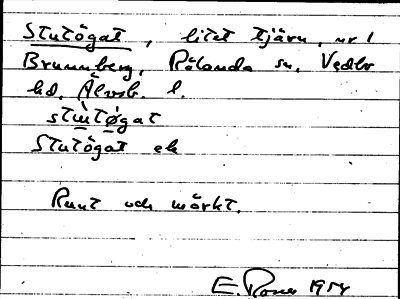 Stutögat, litet tjärn, nr 1
Brunnberg, Rölanda sn, Vedbo
hd. Älvsb. l.
Stutögat ek
Runt och mörkt.
E. 1954